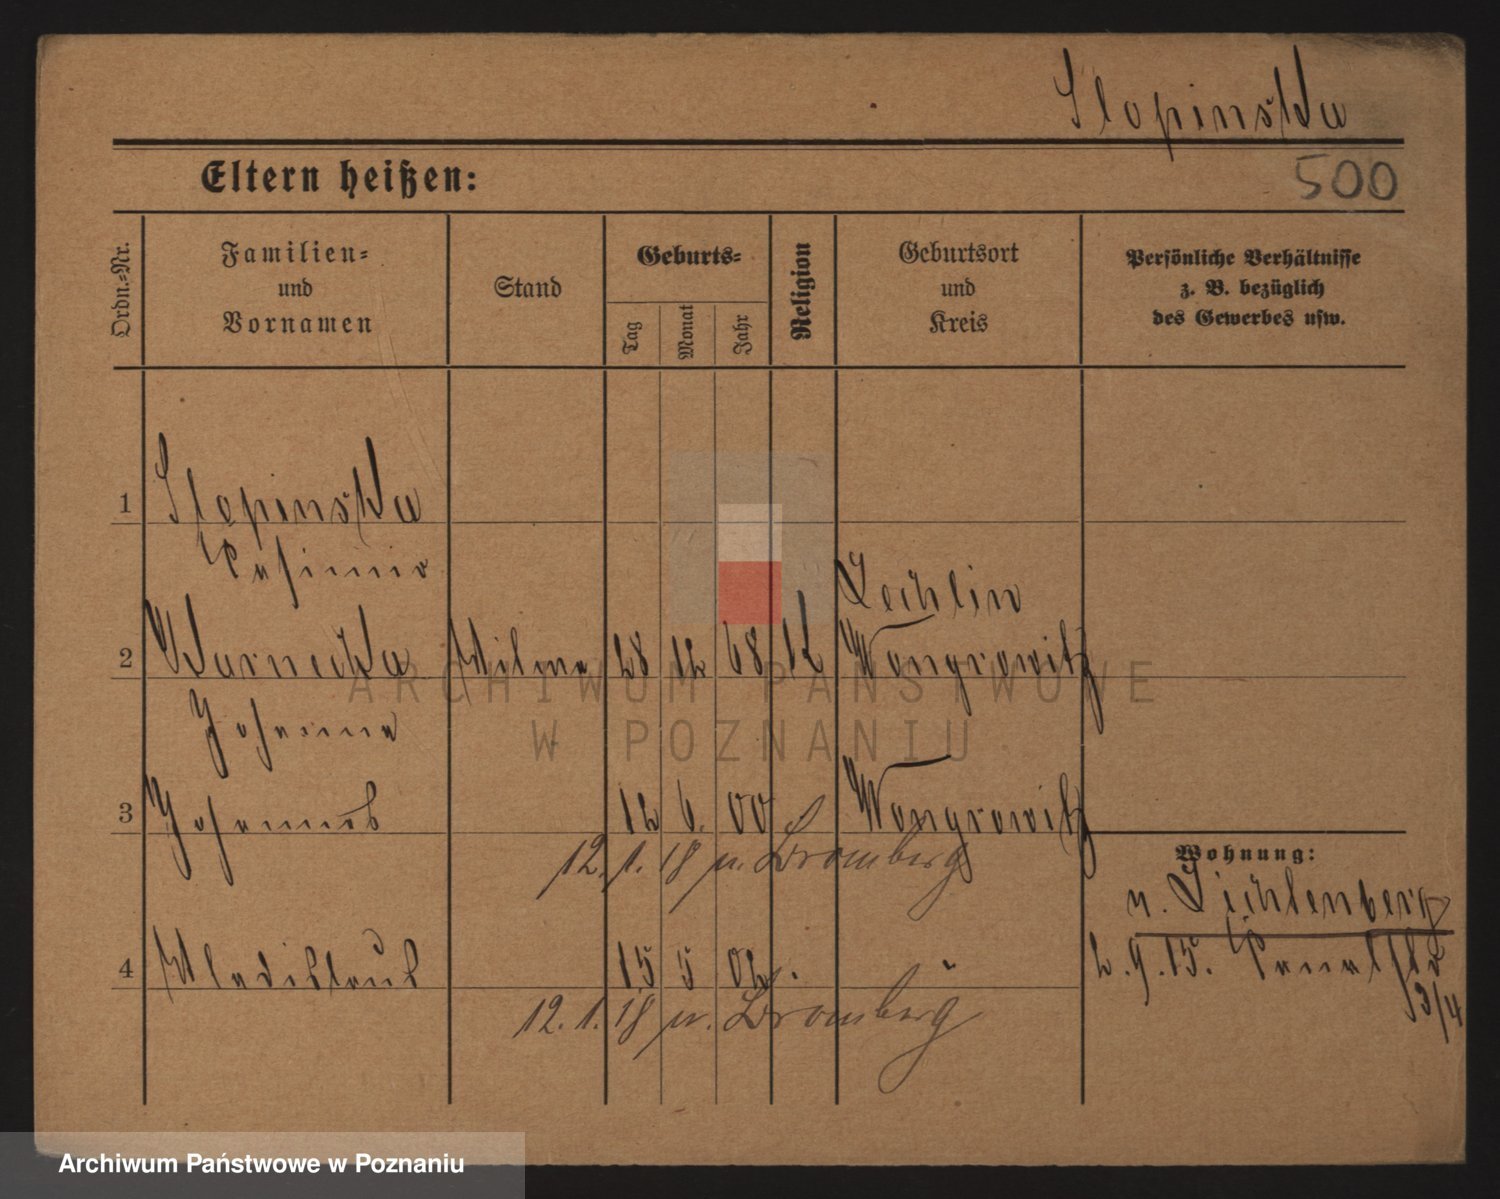 Slopinska
Eltern heißen:
500
Ordn.-Nr.
Familien-
und
Vornamen
Stand
Geburts-
Tag
Monat
Jahr
Religion
Geburtsort
und
Kreis
Persönliche Verhältnisse
z. B. bezüglich
des Gewerbes usw.
1 Slopinska
Casimir
Lechlin
2 Warnecka 28 12 68 k Wongrowitz
Johanna
3 Johannes 12 6. 00 Wongrowitz
12. 1. 18 n. Bromberg
Wohnung:
n. Lichtenberg
4 Wladislaus 15 5 02
2. 9. 15. Kanalstr
3/4
12. 1. 18 n. Bromberg
ARCHIWUM PAŃSTWOWE
W POZNANIU
Archiwum Państwowe w Poznaniu